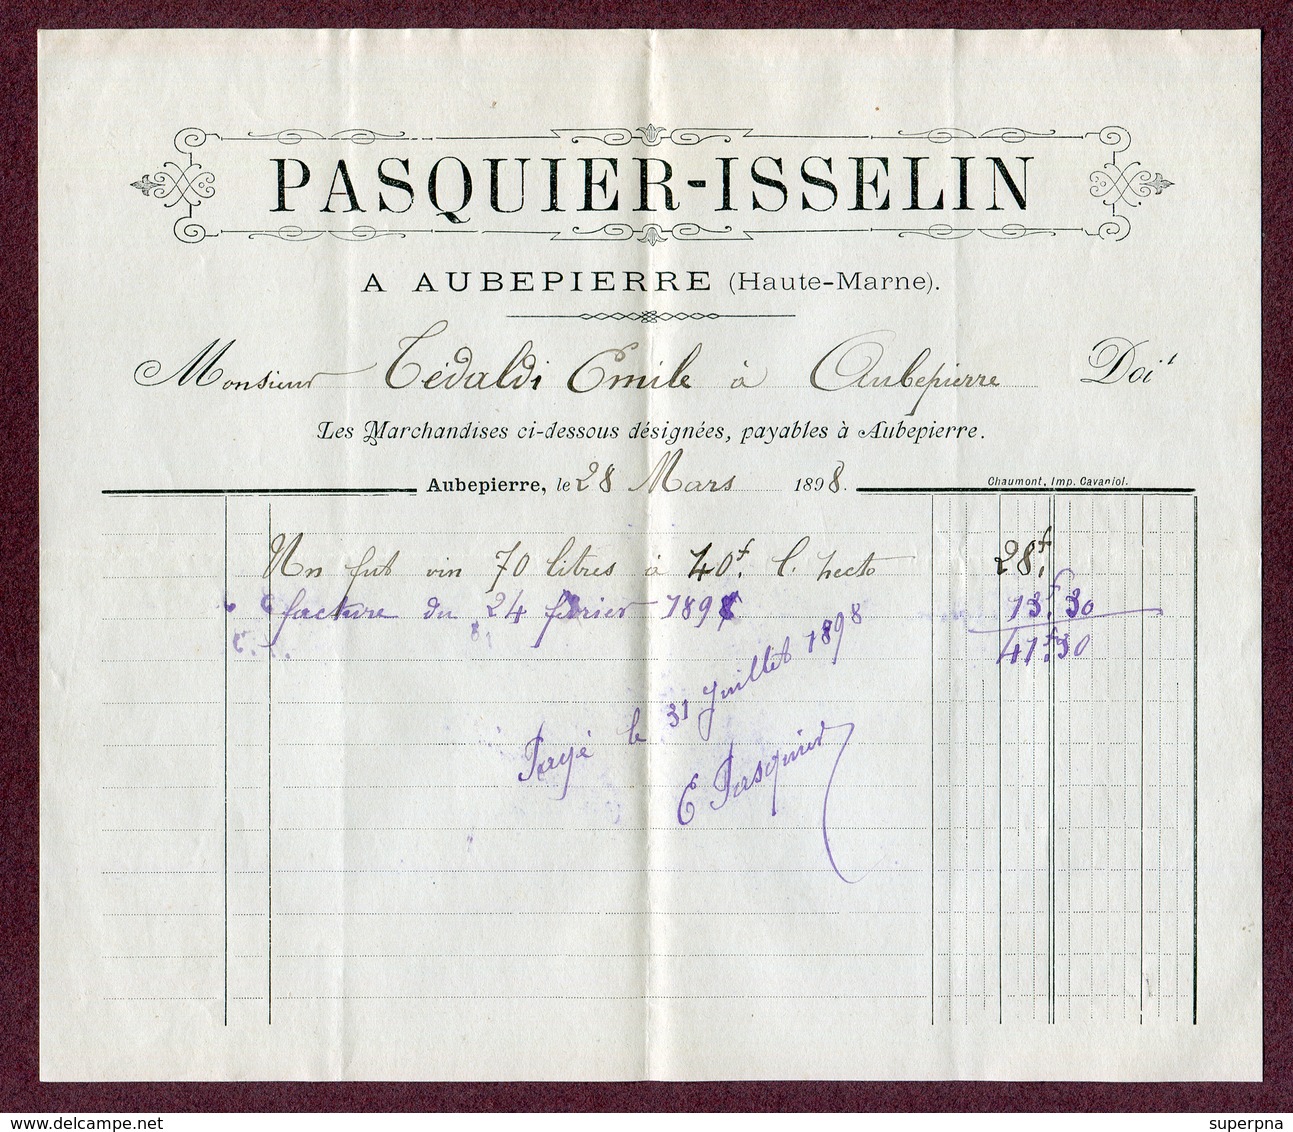 PASQUIER-ISSELIN
A AUBEPIERRE (Haute-Marne).
Monsieur Tédaldi Emile à Aubepierre Doit
Les Marchandises ci-dessous désignées, payables à Aubepierre.
Aubepierre, le 28 Mars 1898.
Chaumont, Imp. Cavaniol.
Un fut vin 70 litres à 40f. l'hecto 28f.
facture du 24 février 1898 13f.30
41f.30
Payé le 31 Juillet 1898
E Pasquier
© delcampe.net
superpna